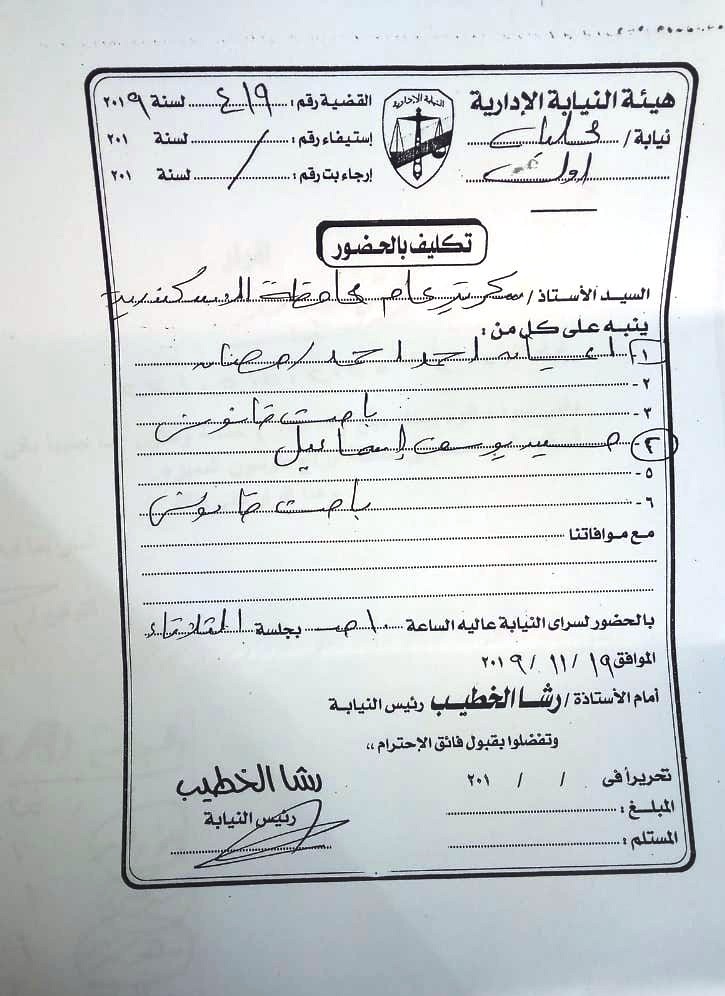 هيئة النيابة الإدارية
نيابة / محليات
أولى
النيابة الإدارية
القضية رقم : ٤١٩ لسنة ٢٠١٩
إستيفاء رقم : / لسنة ٢٠١
إرجاء بت رقم : لسنة ٢٠١
تكليف بالحضور
السيد الأستاذ / سكرتير عام محافظة الاسكندرية
ينبه على كل من :
١- احمد احمد رمضان
٢-
٣- باحث قانونى
٢ سيد يوسف إسماعيل
٥-
٦- باحث قانونى
مع موافاتنا
بالحضور لسراى النيابة عاليه الساعة ١٠ ص بجلسة الثلاثاء
الموافق ١٩ / ١١ / ٢٠١٩
أمام الأستاذة / رشا الخطيب رئيس النيابة
وتفضلوا بقبول فائق الإحترام ،،
تحريرا فى / / ٢٠١
المبلغ :
المستلم :
رشا الخطيب
رئيس النيابة